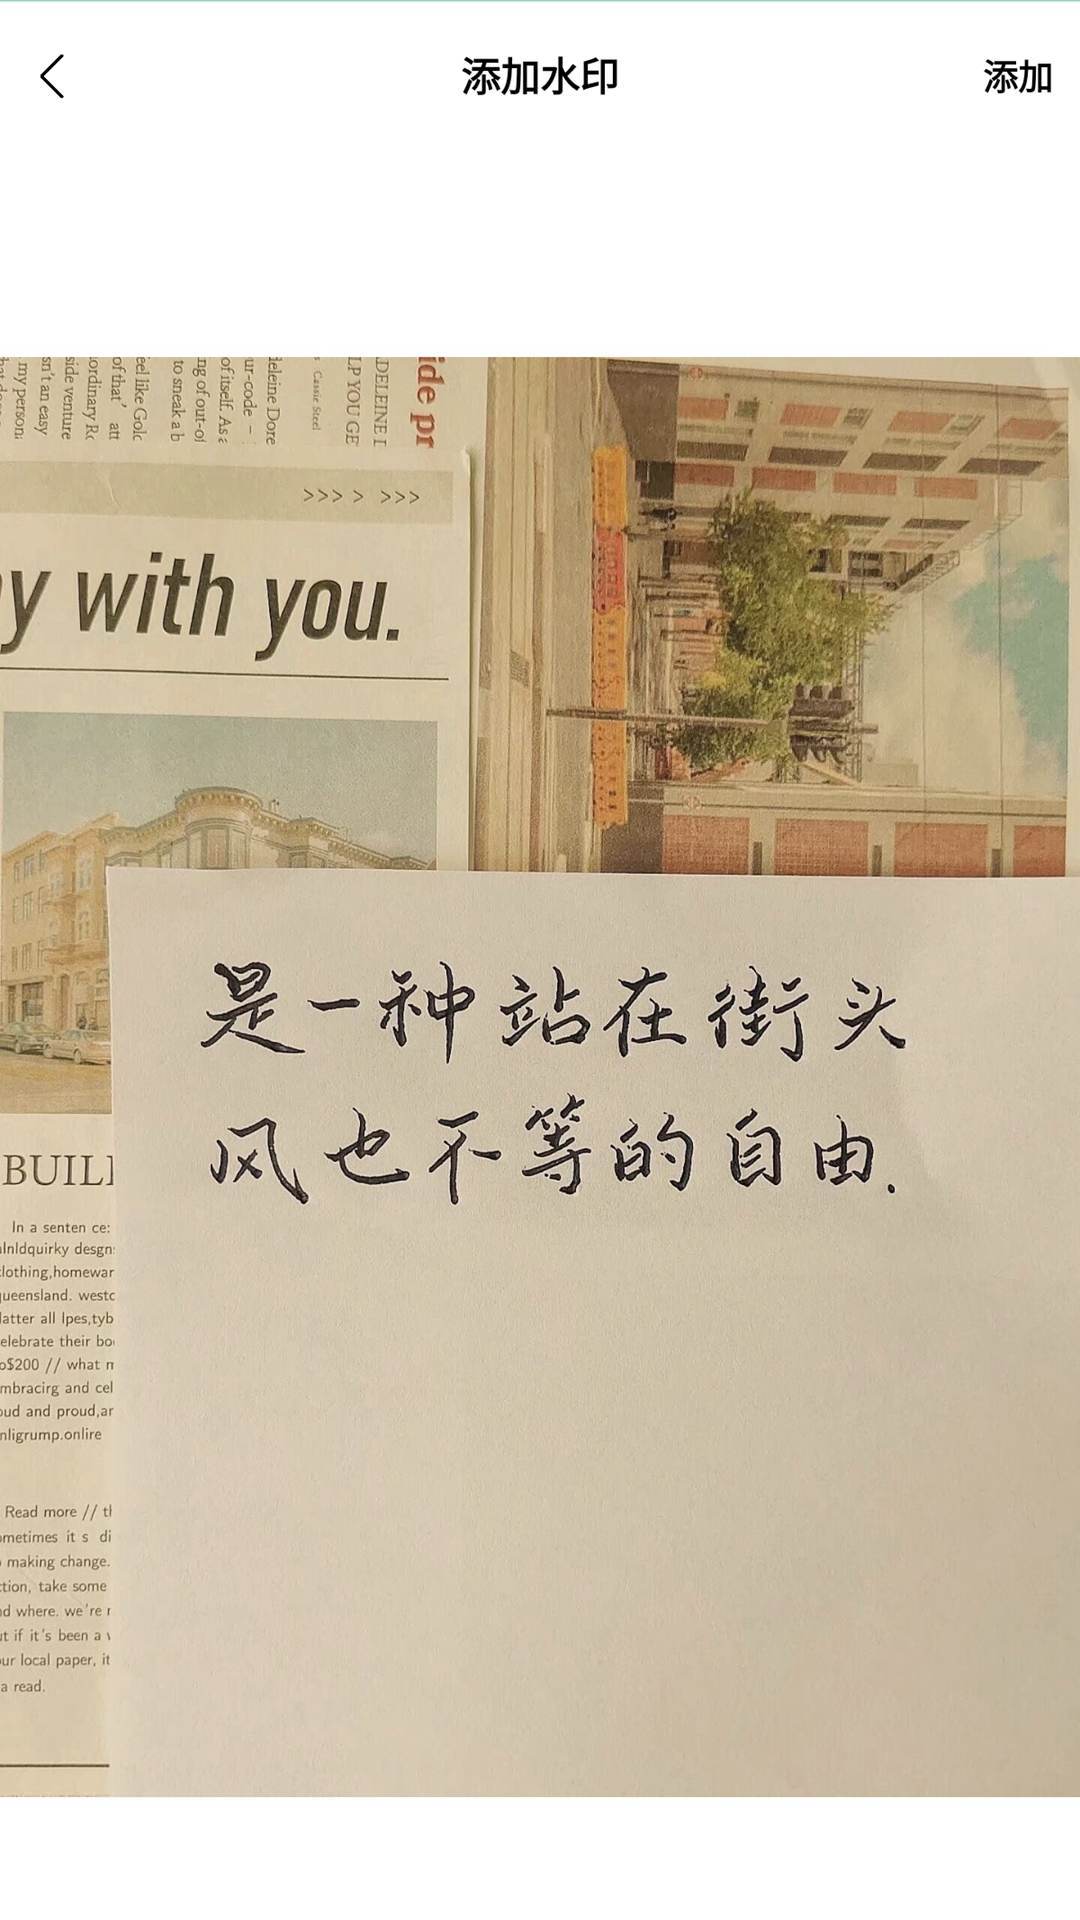 添加水印
添加
ide pr
DELEINE
LP YOU GE
Cassie Steel
deleine Dore
ur-code –
of itself. As a
ng of out-of
to sneak a b
eel like Gold
of that' att
ordinary Ro
side venture
sn't an easy
my person
>>> > >>>
y with you.
BUIL
In a senten ce:
lnldquirky desgn
lothing,homewar
ueensland. westc
latter all lpes,tyb
elebrate their bo
o$200 // what m
mbracirg and cel
oud and proud,ar
nligrump.onlire
Read more // th
ometimes it s di
making change.
ction, take some
nd where. we're r
ut if it's been a
our local paper, it
a read.
是一种站在街头
风也不等的自由.